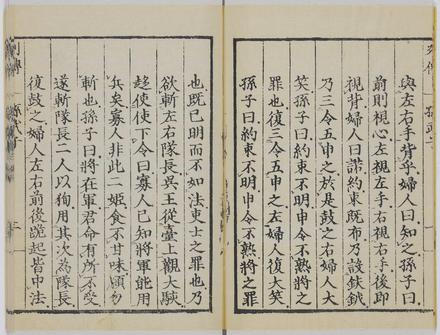 列傳 孫武子
與左右手背乎婦人曰知之孫子曰
前則視心左視左手右視右手後即
視背婦人曰諾約束既布乃設鈇鉞
乃三令五申之於是鼓之右婦人大
笑孫子曰約束不明申令不熟將之
罪也復三令五申之左婦人復大笑
孫子曰約束不明申令不熟將之罪
也既已明而不如法吏士之罪也乃
欲斬左右隊長吳王從臺上觀大駭
趍使使下令曰寡人已知將軍能用
兵矣寡人非此二姬食不甘味願勿
斬也孫子曰將在軍君命有所不受
遂斬隊長二人以徇用其次為隊長
復鼓之婦人左右前後跪起皆中法
列傳 孫武子